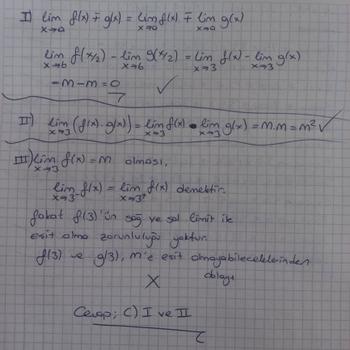 I) lim x→a f(x) ∓ g(x) = lim x→a f(x) ∓ lim x→a g(x)
lim x→6 f(x/2) - lim x→6 g(x/2) = lim x→3 f(x) - lim x→3 g(x)
-m-m=0 ✓
II) lim x→3 (f(x)·g(x)) = lim x→3 f(x) • lim x→3 g(x) = m.m = m² ✓
III) lim x→3 f(x) = m olması,
lim x→3⁻ f(x) = lim x→3⁺ f(x) demektir.
fakat f(3)'ün sağ ve sol limit ile
eşit olma zorunluluğu yoktur.
f(3) ve g(3), m'e eşit olmayabileceklerinden
dolayı
X
Cevap; C) I ve II